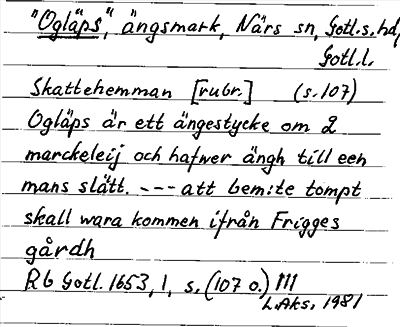 "Ogläps", ängsmark, Närs sn, Gotl.s.hd,
Gotl.l.
Skattehemman [rubr.] (s.107)
Ogläps är ett ängestycke om 2
marckeleij och hafwer ängh till een
mans slått. --- att bem:te tompt
skall wara kommen ifrån Frigges
gårdh
Rb Gotl. 1653, 1, s. (107 o.) 111
L.Aks. 1981